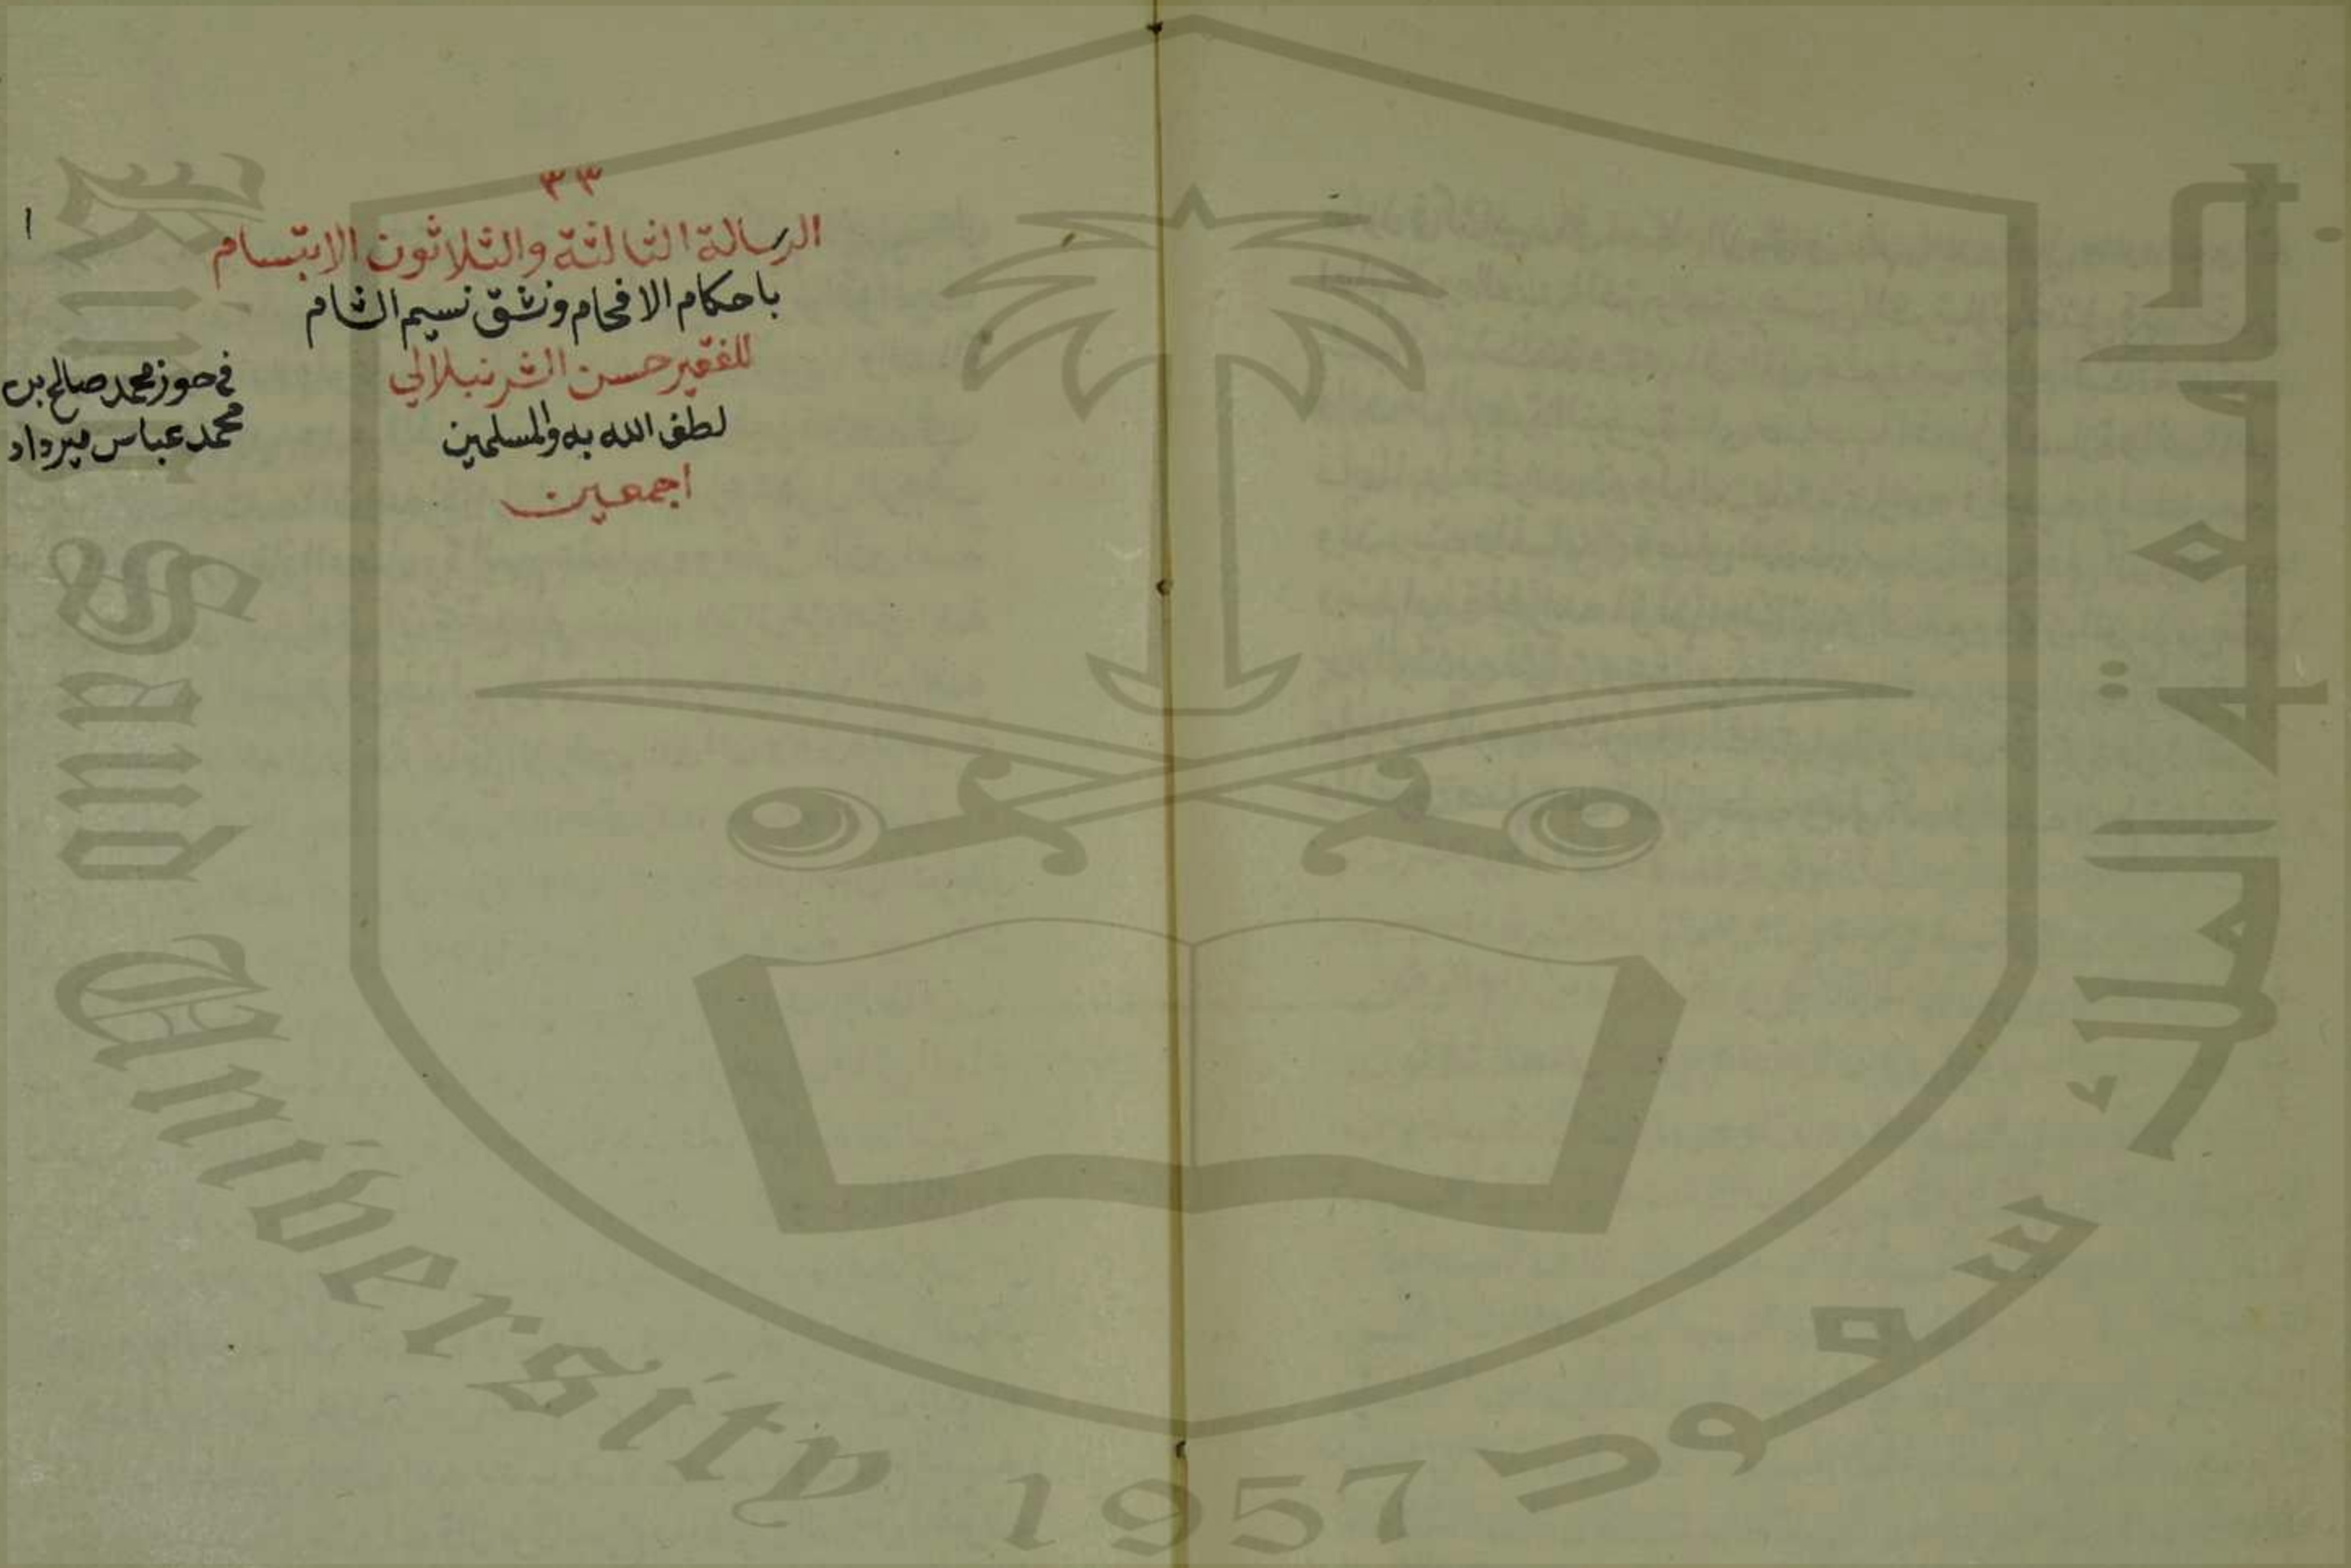 ٣٣
الرسالة الثالثة والثلاثون الابتسام
باحكام الافحام ونشق نسيم الشام
للفقير حسن الشرنبلالي
لطف الله به والمسلمين
اجمعين
١
في حوز محمد صالح بن
محمد عباس ميرداد
جامعة الملك سعود
King Saud University
1957